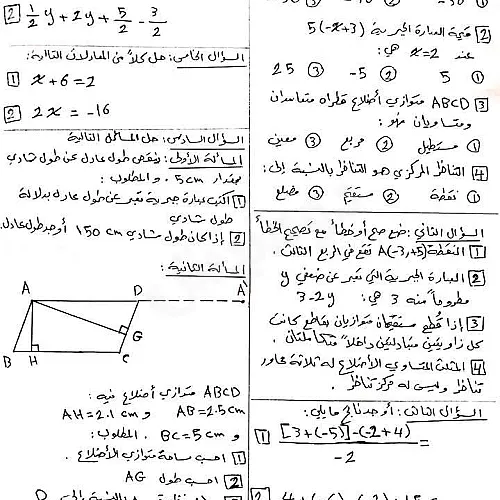 2) قيمة العبارة الجبرية 5(-x+3)
عند x=2 هي:
1) 5 2) -5 3) 25
3) ABCD متوازي أضلاع قطراه متعامدان
ومتساويان فهو:
1) مستطيل 2) مربع 3) معين
4) التناظر المركزي هو التناظر بالنسبة إلى:
1) نقطة 2) مستقيم 3) مضلع
السؤال الثاني: ضع صح أو خطأ مع تصحيح الخطأ
1) النقطة A(-3,+5) تقع في الربع الثالث.
2) العبارة الجبرية التي تعبر عن ضعفي y
مطروحاً منه 3 هي: 3-2y
3) إذا قطع مستقيمان متوازيان بقاطع كانت
كل زاويتين متبادلتين داخلاً متكاملتان.
4) المثلث المتساوي الأضلاع له ثلاثة محاور
تناظر وليس له مركز تناظر.
السؤال الثالث: أوجد ناتج مايلي:
1) [3+(-5)]-(-2+4) =
-2
2) 1/2 y + 2y + 5/2 - 3/2
السؤال الخامس: حل كلاً من المعادلات التالية:
1) x+6=2
2) 2x = -16
السؤال السادس: حل المسائل التالية
المسألة الأولى: ينقص طول عادل عن طول شادي
بمقدار 5cm. والمطلوب:
1) اكتب عبارة جبرية تعبر عن طول عادل بدلالة
طول شادي
2) إذا كان طول شادي 150 cm أوجد طول عادل.
المسألة الثانية:
A D A'
G
B H C
ABCD متوازي أضلاع فيه:
AB=2.5cm و AH=2.1cm
و BC=5cm. المطلوب:
1) احسب مساحة متوازي الأضلاع.
2) احسب طول AG